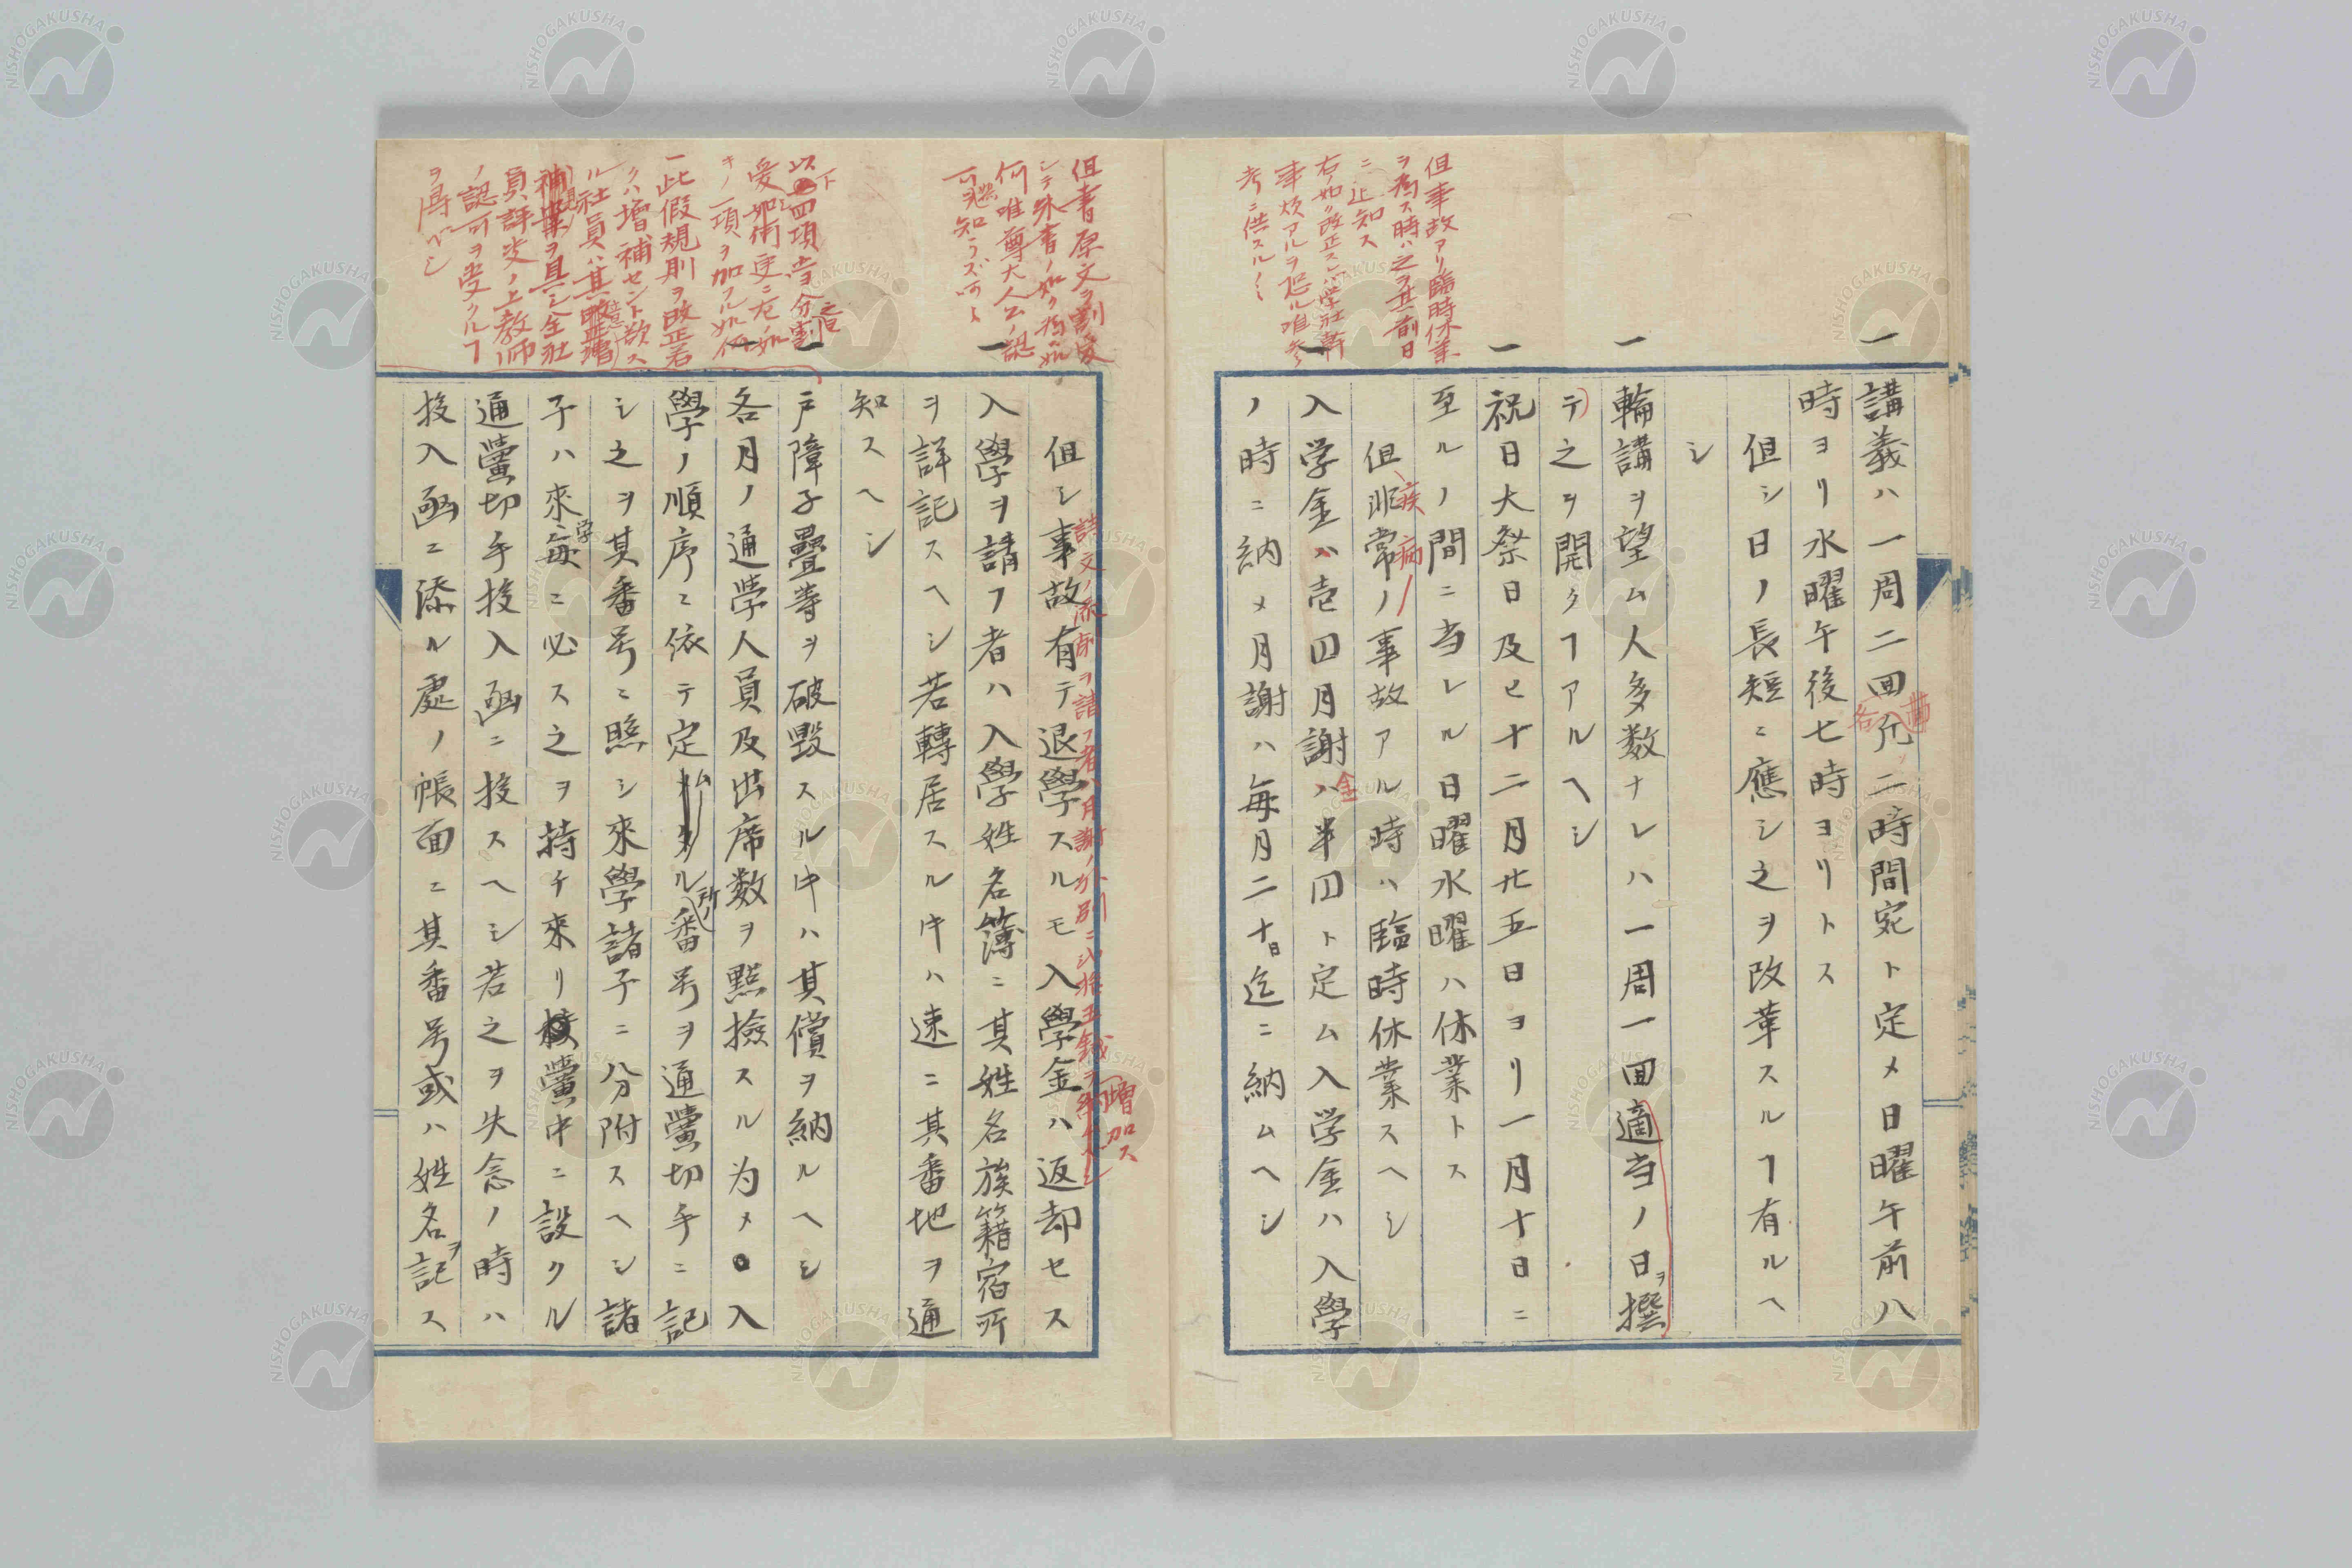 但事故アリ臨時休業
ヲ為ス時ハ之ヲ其前日
ニ止知ス
右ノ如ク改正スレバ学社幹
事煩アルヲ恐ル唯参
考ニ供スルノミ
一 講義ハ一周二回凢二時間宛ト定メ日曜午前八
時ヨリ水曜午後七時ヨリトス
但シ日ノ長短ニ應シ之ヲ改革スルヿ有ルヘ
シ
一 輪講ヲ望ム人多数ナレハ一周一回適当ノ日ヲ撰
テ之ヲ開クヿアルヘシ
一 祝日大祭日及ヒ十二月廿五日ヨリ一月十日ニ
至ルノ間ニ当レル日曜水曜ハ休業トス
疾病ノ
但非常ノ事故アル時ハ臨時休業スヘシ
一 入学金ハ壱円月謝金ハ半円ト定ム入学金ハ入學
ノ時ニ納メ月謝ハ毎月二十日迄ニ納ムヘシ
但書原文ヲ割愛
シテ朱書ノ如ク為ス如
何唯尊大人公ノ認
可
以下四項
一此假規則ヲ改正若
クハ増補セント欲ス
ル社員ハ其
補案ヲ具シ全社
員評決ノ上教師
ノ認可ヲ受クルヿ
ヲ得ベシ
詩文ノ添削ヲ請フ者ハ月謝ノ外別ニ弐拾五銭ヲ
増加ス
但シ事故有テ退學スルモ入學金ハ返却セス
一 入學ヲ請フ者ハ入學姓名簿ニ其姓名族籍宿所
ヲ詳記スヘシ若轉居スル时ハ速ニ其番地ヲ通
知スヘシ
一 戸障子疊等ヲ破毀スル时ハ其償ヲ納ルヘシ
一 各月ノ通學人員及出席数ヲ點撿スル为メ入
學ノ順序ニ依テ定ムル所ノ番号ヲ通黌切手ニ記
シ之ヲ其番号ニ照シ來學諸子ニ分附スヘシ諸
子ハ來学毎ニ必ス之ヲ持チ來リ黌中ニ設クル
通黌切手投入凾ニ投スヘシ若之ヲ失念ノ時ハ
投入凾ニ添ル處ノ帳面ニ其番号或ハ姓名ヲ記ス